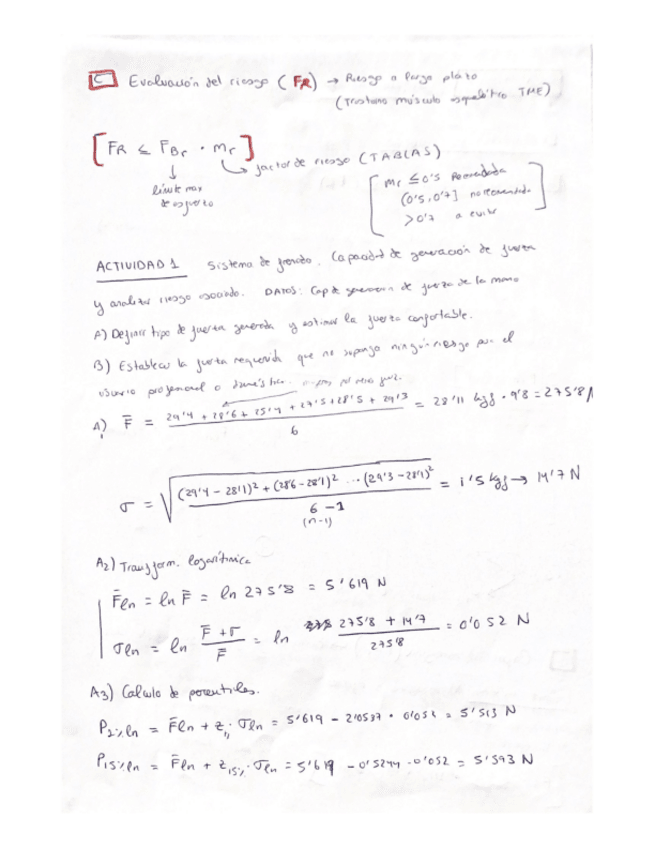 C Evaluación del riesgo (FR) → Riesgo a largo plazo
(Trastorno músculo esquelético TME)
[FR ≤ FBr · mr]
↓ ↳ factor de riesgo (TABLAS)
límite max
de esfuerzo
[mr ≤ 0'5 Recomendada
(0'5, 0'7] no recomendada
>0'7 a evitar]
ACTIVIDAD 1 Sistema de frenado. Capacidad de generación de fuerza
y analizar riesgo asociado. DATOS: Cap de generación de fuerza de la mano
A) Definir tipo de fuerza generada y estimar la fuerza confortable.
B) Establecer la fuerza requerida que no suponga ningún riesgo para el
usuario profesional o doméstico.
A) F̄ = (29'4 + 28'6 + 25'4 + 27'5 + 28'5 + 29'3) / 6 = 28'11 kgf · 9'8 = 275'8 N
σ = √((29'4 - 28'1)² + (28'6 - 28'1)² ... (29'3 - 28'1)²) / (6 - 1) = 1'5 kgf → 14'7 N
(n-1)
A2) Transform. logarítmica
F̄ln = ln F̄ = ln 275'8 = 5'619 N
σln = ln (F̄ + σ) / F̄ = ln (275'8 + 14'7) / 275'8 = 0'052 N
A3) Calculo de percentiles.
P2%ln = F̄ln + z · σln = 5'619 - 2'0537 · 0'052 = 5'513 N
P15%ln = F̄ln + z15% · σln = 5'619 - 0'5244 · 0'052 = 5'593 N